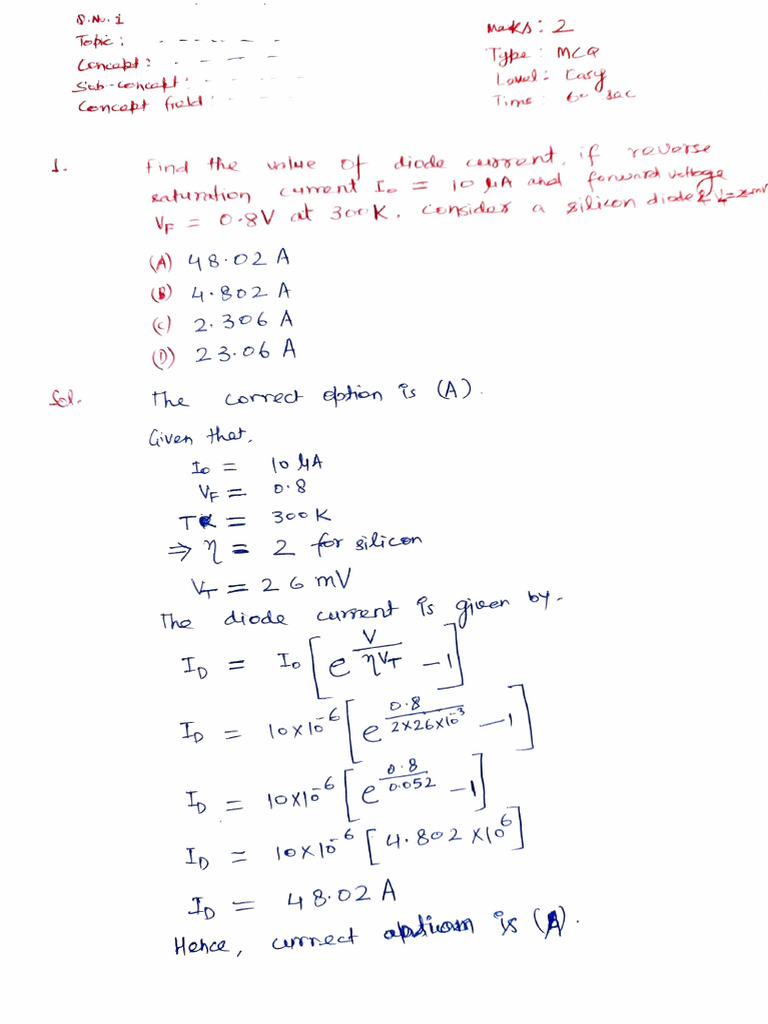 S.No. 1
Topic: - - - - - -
Concept: - - - -
Sub-concept: - - - -
Concept field: - - -
Marks: 2
Type: MCQ
Level: Easy
Time: 60 sec
1. Find the value of diode current, if reverse
saturation current I₀ = 10 μA and forward voltage
V_F = 0.8V at 300K. Consider a silicon diode &
(A) 48.02 A
(B) 4.802 A
(C) 2.306 A
(D) 23.06 A
Sol. The correct option is (A).
Given that,
I₀ = 10 μA
V_F = 0.8
T = 300K
⇒ η = 2 for silicon
V_T = 26 mV
The diode current is given by-
I_D = I₀ [e^(V/ηV_T) - 1]
I_D = 10×10^-6 [e^(0.8/2×26×10^-3) - 1]
I_D = 10×10^-6 [e^(0.8/0.052) - 1]
I_D = 10×10^-6 [4.802×10^6]
I_D = 48.02 A
Hence, currect option is (A).